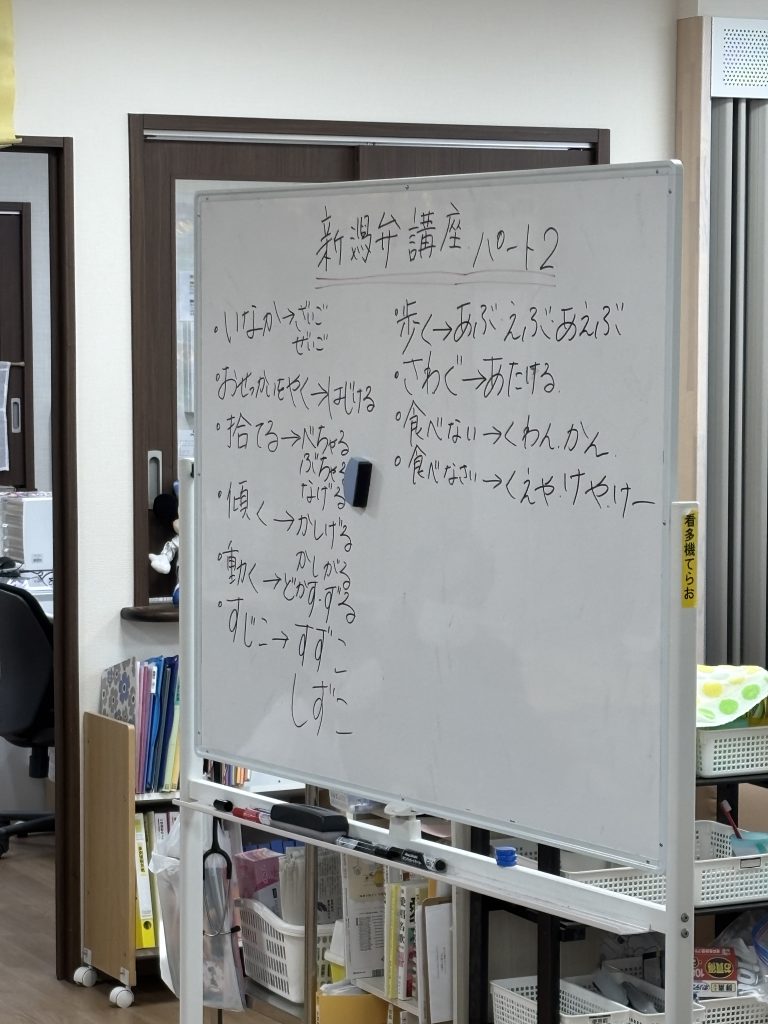 新潟弁講座 パート2
・いなか→ざいご
ぜいご
・おせっかいをやく→はじける
・捨てる→べちゃる
ぶちゃる
なげる
・傾く→かしげる
かしがる
・動く→どかす・ずる
・すじこ→すずこ
しずこ
・歩く→あぶ・えぶ・あえぶ
・さわぐ→あたける
・食べない→くわん.かん.
・食べなさい→くえや.けや.けー
看多機てらお
お買得